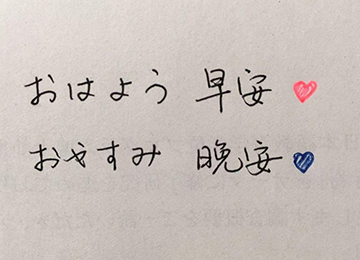 おはよう 早安
おやすみ 晚安